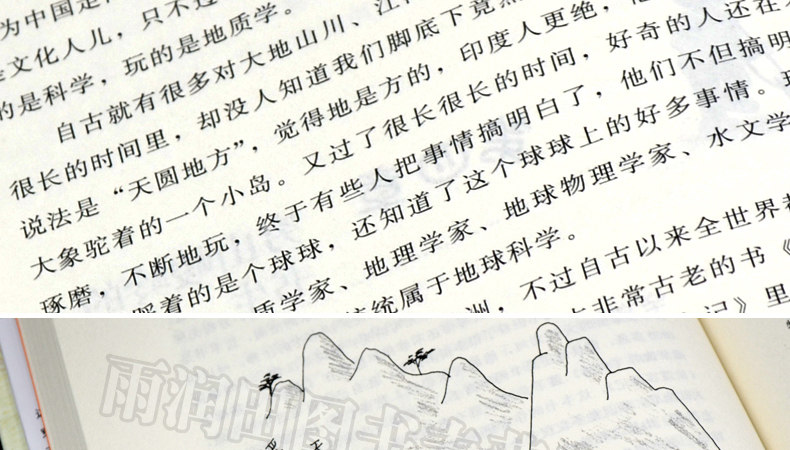 为中国是
文化人儿，只不过
的是科学，玩的是地质学。
自古就有很多对大地山川、江
很长的时间里，却没人知道我们脚底下竟然
说法是“天圆地方”，觉得地是方的，印度人更绝，他
大象驼着的一个小岛。又过了很长很长的时间，好奇的人还在
琢磨，不断地玩，终于有些人把事情搞明白了，他们不但搞明
踩着的是个球球，还知道了这个球球上的好多事情。
质学家、地理学家、地球物理学家、水文学
统属于地球科学。
洲，不过自古以来全世界
非常古老的书《
记》里
雨润田图书